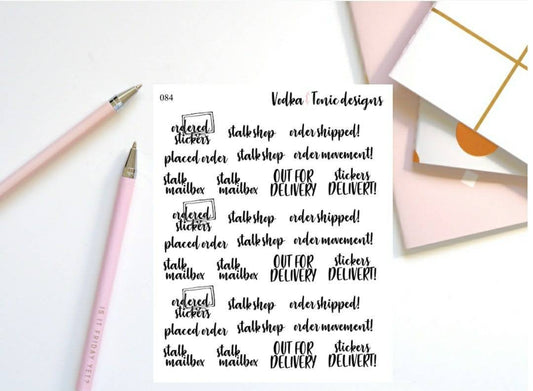 084
Vodka & Tonic designs
ordered stickers
stalk shop
order shipped!
placed order
stalk shop
order movement!
stalk mailbox
stalk mailbox
OUT FOR DELIVERY
stickers DELIVERT!
ordered stickers
stalk shop
order shipped!
placed order
stalk shop
order movement!
stalk mailbox
stalk mailbox
OUT FOR DELIVERY
stickers DELIVERT!
ordered stickers
stalk shop
order shipped!
placed order
stalk shop
order movement!
stalk mailbox
stalk mailbox
OUT FOR DELIVERY
stickers DELIVERT!
IS IT FRIDAY YET?